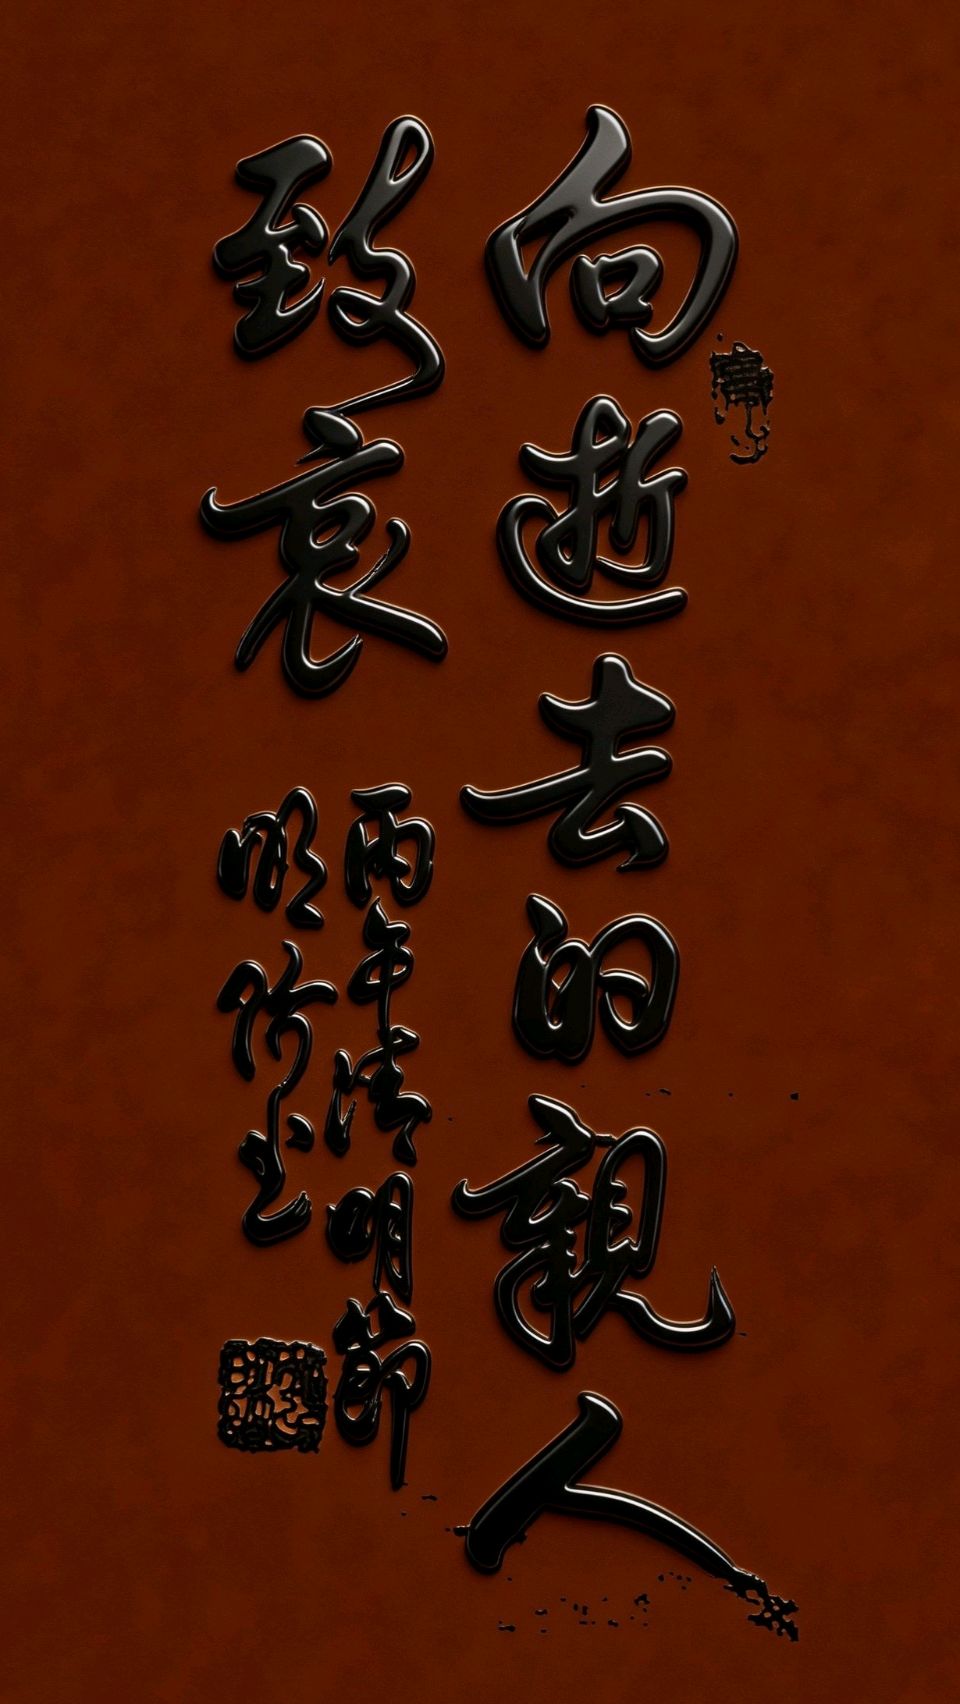 向逝去的親人
致哀
丙午清明節
明